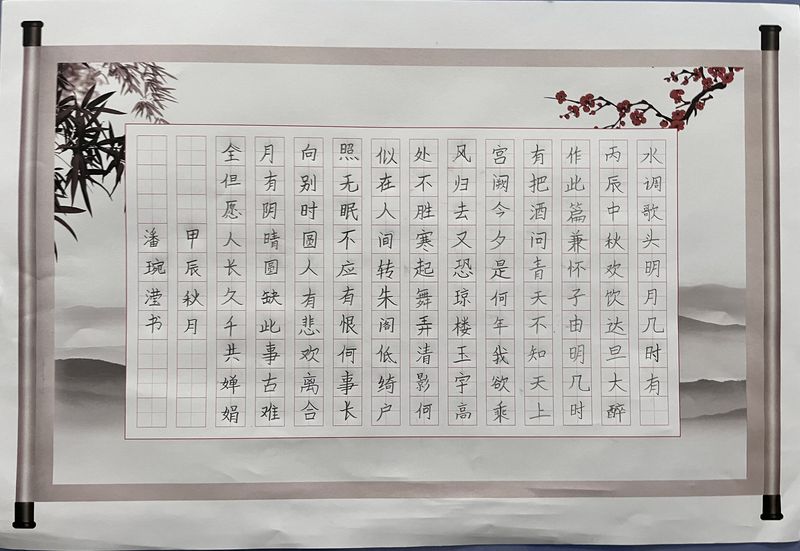 水调歌头明月几时有
丙辰中秋欢饮达旦大醉
作此篇兼怀子由明几时
有把酒问青天不知天上
宫阙今夕是何年我欲乘
风归去又恐琼楼玉宇高
处不胜寒起舞弄清影何
似在人间转朱阁低绮户
照无眠不应有恨何事长
向别时圆人有悲欢离合
月有阴晴圆缺此事古难
全但愿人长久千共婵娟
甲辰秋月
潘琬滢书